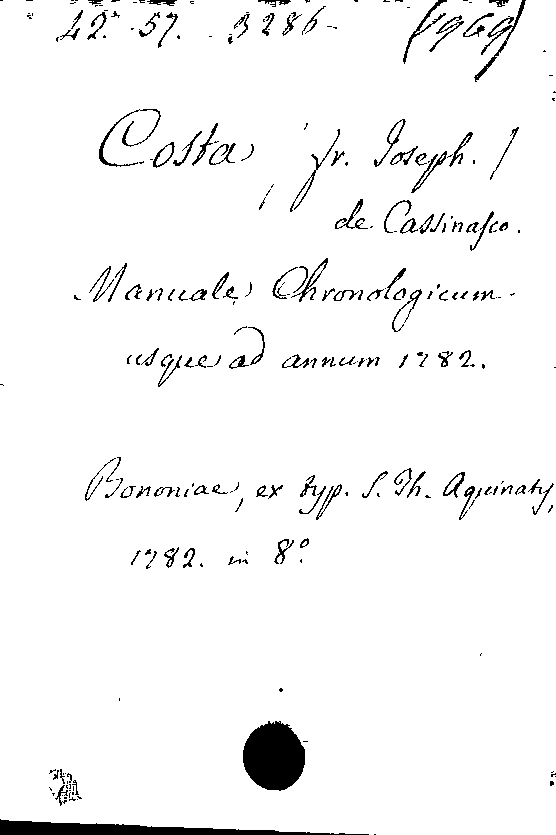 42. 57. 3286- (1969)
Costa, /fr. Joseph./
de Cassinasco.
Manuale Chronologicum
usque ad annum 1782.
Bononiae, ex typ. S. Th. Aquinaty,
1782. in 8º.